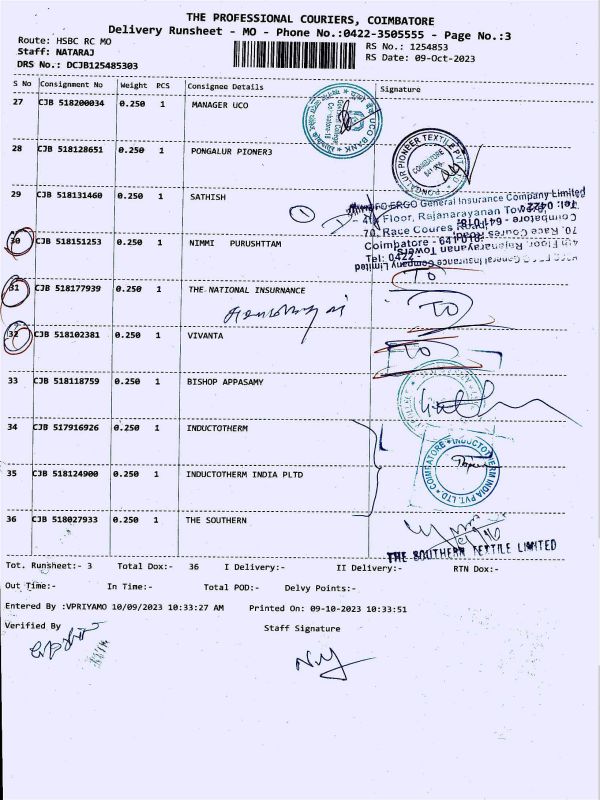 THE PROFESSIONAL COURIERS, COIMBATORE
Delivery Runsheet - MO - Phone No.:0422-3505555 - Page No.:3
Route: HSBC RC MO
RS No.: 1254853
Staff: NATARAJ
RS Date: 09-Oct-2023
DRS No.: DCJB125485303
S No Consignment No Weight PCS Consignee Details Signature
27 CJB 518200034 0.250 1 MANAGER UCO
UCO BANK
28 CJB 518128651 0.250 1 PONGALUR PIONER3
PONGALUR PIONEER TEXTILE PVT
COIMBATORE
29 CJB 518131460 0.250 1 SATHISH
1
ERGO General Insurance Company Limited
Floor, Rajanarayanan Towers
70, Race Coures Road,
Coimbatore - 641 018.
Tel: 0422
30 CJB 518151253 0.250 1 NIMMI PURUSHTTAM
TO
31 CJB 518177939 0.250 1 THE NATIONAL INSURNANCE
TO
32 CJB 518102381 0.250 1 VIVANTA
TO
33 CJB 518118759 0.250 1 BISHOP APPASAMY
34 CJB 517916926 0.250 1 INDUCTOTHERM
INDUCTOTHERM INDIA PVT. LTD. COIMBATORE
35 CJB 518124900 0.250 1 INDUCTOTHERM INDIA PLTD
36 CJB 518027933 0.250 1 THE SOUTHERN
THE SOUTHERN TEXTILE LIMITED
Tot. Runsheet:- 3 Total Dox:- 36 I Delivery:- II Delivery:- RTN Dox:-
Out Time:- In Time:- Total POD:- Delvy Points:-
Entered By :VPRIYAMO 10/09/2023 10:33:27 AM Printed On: 09-10-2023 10:33:51
Verified By Staff Signature